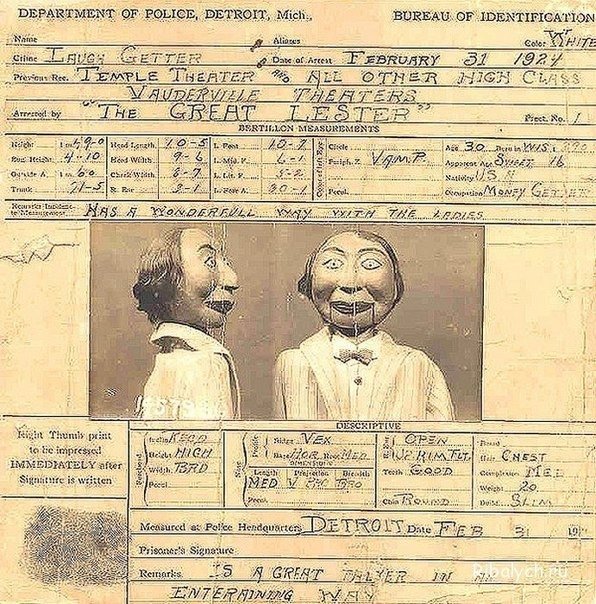 DEPARTMENT OF POLICE, DETROIT, Mich., BUREAU OF IDENTIFICATION
Name Aliases Color WHITE
Crime LAUGH GETTER Date of Arrest FEBRUARY 31 1924
Previous Rec. TEMPLE THEATER AND ALL OTHER HIGH CLASS
VAUDERVILLE THEATERS
Arrested by "THE GREAT LESTER" Prect. No. 1
BERTILLON MEASUREMENTS
Height 1 m 49-0 Head Length 10-5 L. Foot 10-7 Circle Age 30 Born in WIS.
Eng. Height 4-10 Head Width 9-6 L. Mid. F. 6-1 Periph. Z. VAMP. Apparent Age SWEET 16
Outside A. 1 m 60 Cheek Width 8-7 L. Lit. F. 5-2 Nativity U S A
Trunk 71-5 R. Ear 8-1 L. Fore A. 20-1 Pecul. Occupation MONEY GETTER
Remarks Incident to Measurement HAS A WONDERFULL WAY WITH THE LADIES
DESCRIPTIVE
Right Thumb print
to be impressed
IMMEDIATELY after
Signature is written
Forehead
Inclin. RECD
Height HIGH
Width BAD
Pecul.
Nose
Profile
Ridge VEX
Base HOR Root MED
DIMENSIONS
Length Projection Breadth
MED
Pecul.
OPEN
Teeth GOOD
Chin ROUND
Beard
Hair CHEST
Complexion MED
Weight 20
Build SLIM
Measured at Police Headquarters DETROIT Date FEB 31 19
Prisoner's Signature
Remarks IS A GREAT TALKER IN AN
ENTERAINING WAY
Ribalych.ru